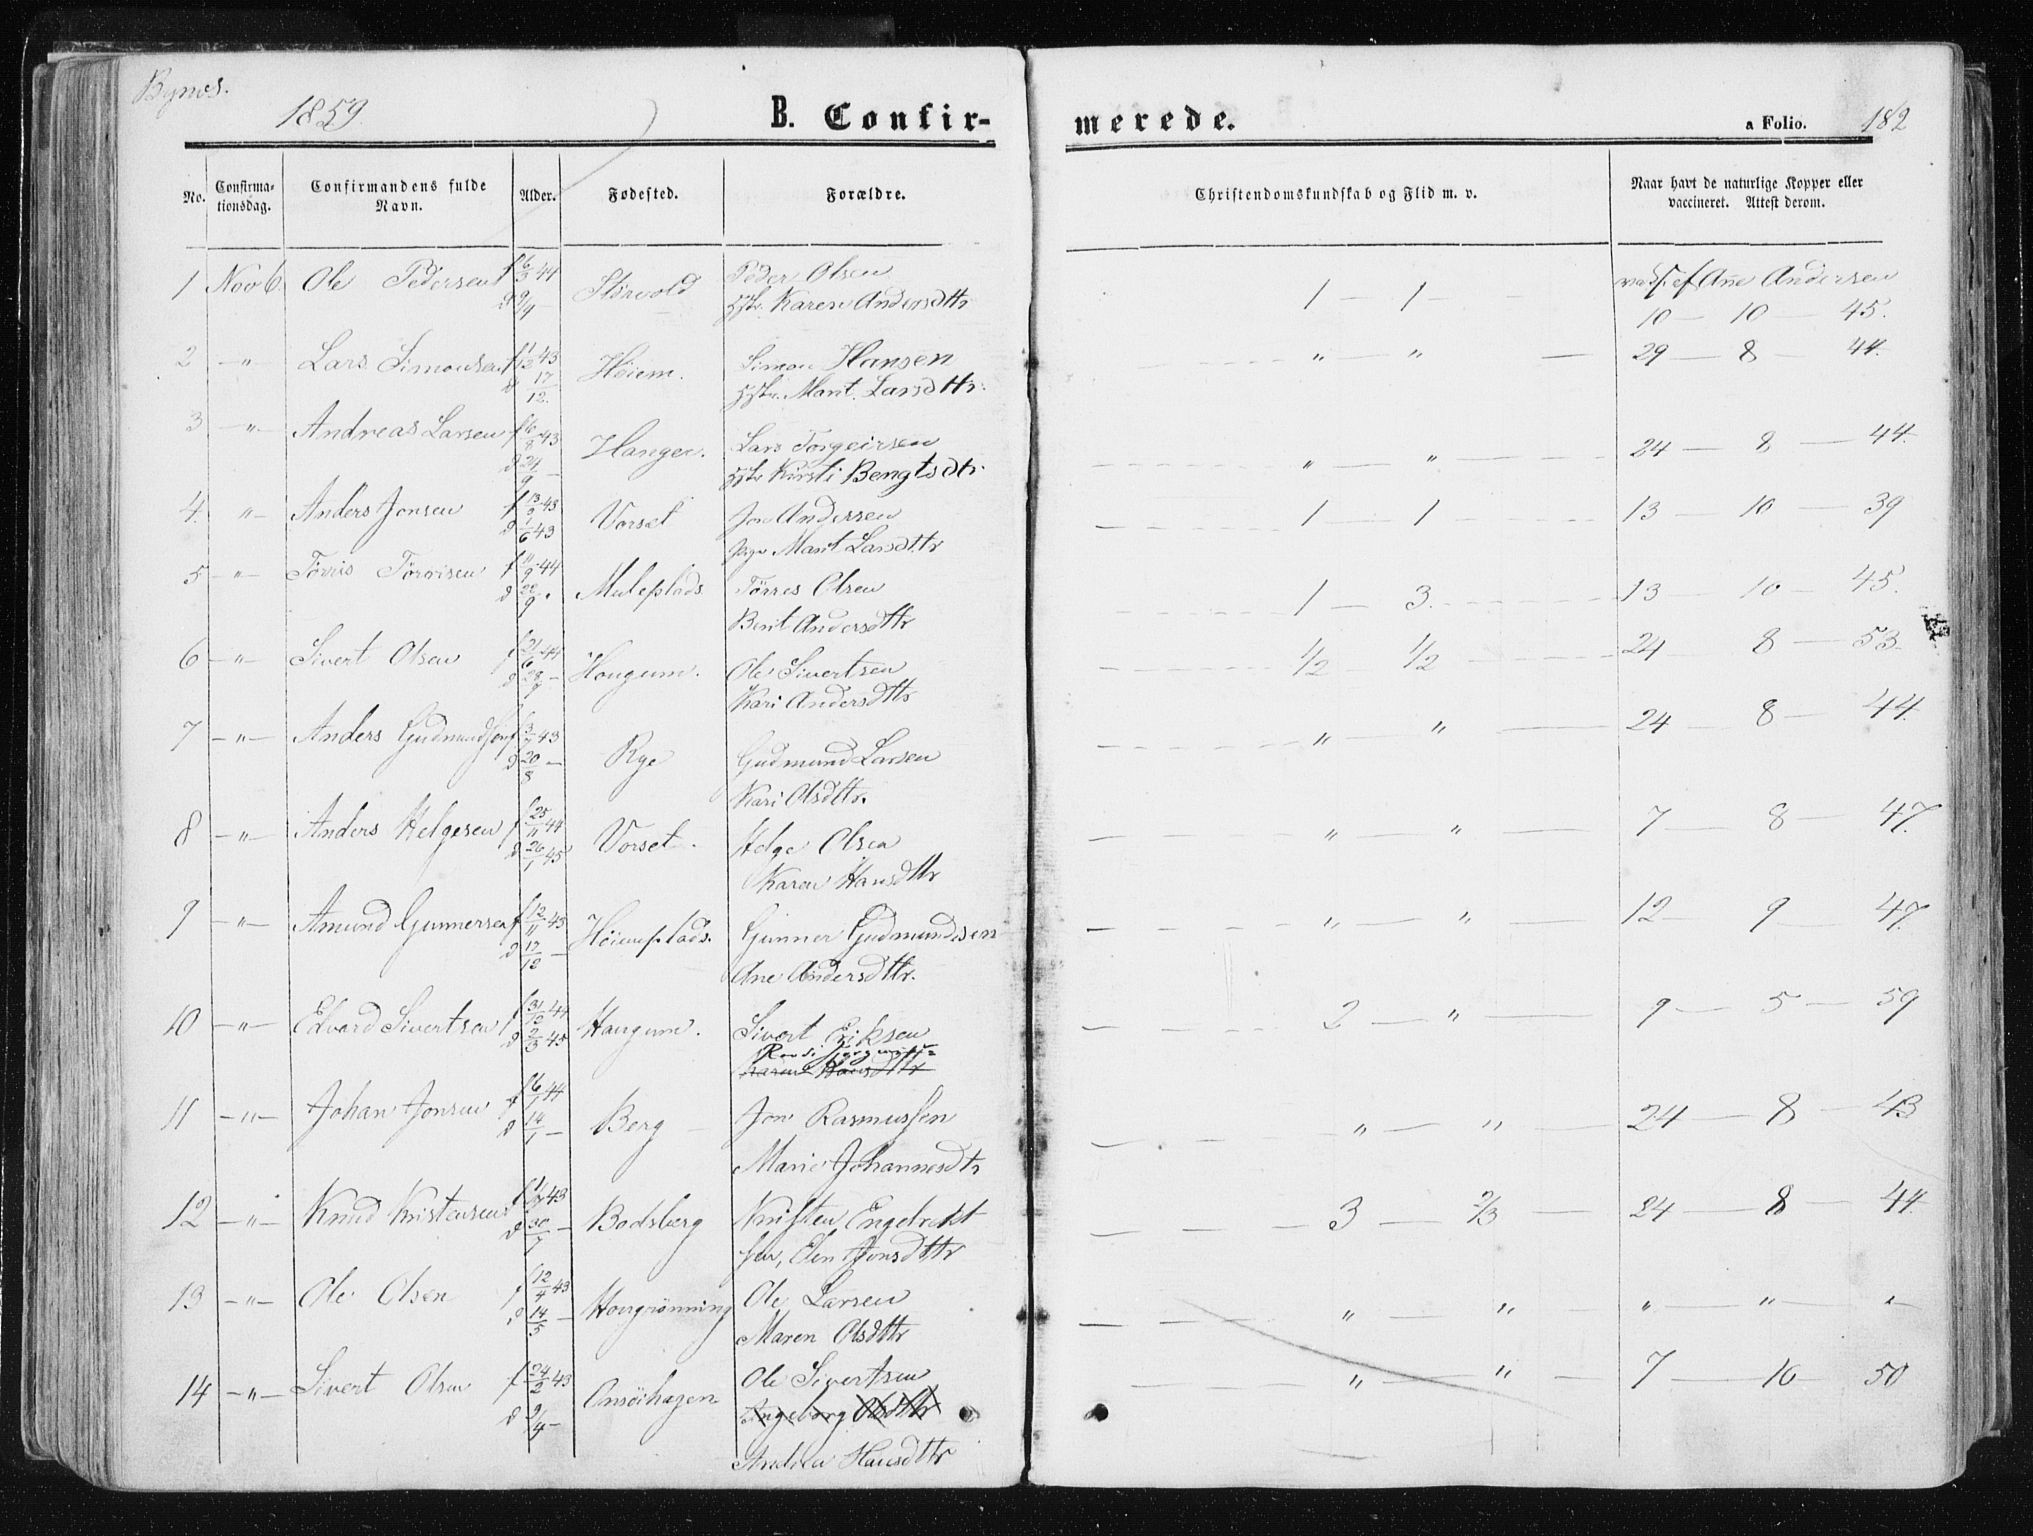 Bynes.
1859.
B. Confir-
merede.
a Folio. 182
No.
Confirma-
tionsdag.
Confirmandens fulde
Navn.
Alder.
Fødested.
Forældre.
Christendomskundskab og Flid m. v.
Naar havt de naturlige Kopper eller
vaccineret. Attest derom.
1 Nov 6. Ole Pedersen f 6/3 44 Peder Olsen 1 — 1 — Ane Andersen
d 9/4 — Karen Andersdttr 10 — 10 — 45.
2 —"— Lars Simonsen f 1/12 43 Høiem. Simon Hansen " " — 29 — 8 — 44.
d 17/12. Marit Larsdttr.
3 —"— Andreas Larsen f 6/8 43 Hangen. Lars Torgeirsen " — " — 24 — 8 — 44.
d 24/9 — Kirsti Bengtsdtr.
4. "— Anders Jonsen f 13/3 43 Vorset Jon Andersen 1 — 1 — 13 — 10 — 39
d 1/6 43 Marit Larsdttr
5 —"— Tørris Tørrisen f 11/9 44 Muleplads Tørres Olsen 1 — 3. 13 — 10 — 45.
d 22/9 Berit Andersdttr
6 —"— Sivert Olsen f 21/6 44 Hougum. Ole Sivertsen 1/2 — 1/2 — 24 8 — 53.
d 28/7 — Kari Andersdttr
7 —"— Anders Gudmundsen f 3/7 43 Rye Gudmund Larsen " — " — 24 — 8 — 44.
d 20/8 — Kari Olsdttr.
8 —"— Anders Helgesen f 25/11 44 Vorset. Helge Olsen " — " — 7 — 8 — 47.
d 26/1 45 Karen Hansdttr
9 —"— Amund Gunnersen f 12/11 43 Høiemsplads. Gunner Gudmundsen " — " — 12 — 9 — 47.
d 17/12 — Ane Andersdttr.
10 —"— Edvard Sivertsen f 31/12 44 Haugum. Sivert Eriksen 2 — " — 9 — 5 — 59
d 2/3 45
Karen Hansdttr
11 —"— Johan Jonsen f 6/1 44 Berg — Jon Rasmussen " — " — 24 — 8 — 43
d 14/1 — Marie Johannesdtr
12 —"— Knud Kristensen f 1/7 43 Bodsberg Kristen Engebrekt 3 — 2/3 — 24 — 8 — 44.
d 30/7 — sen, Elen Jonsdttr
13 —"— Ole Olsen f 12/4 43 Hovgrønning Ole Larsen " — " — " — " — "
d 14/5 — Maren Olsdttr
14 —"— Sivert Olsen f 24/2 43 Onsøihagen Ole Sivertsen " — " — 7 — 10 — 50
d 9/4 — Ingeborg Olsdttr
Andrea Hansdttr